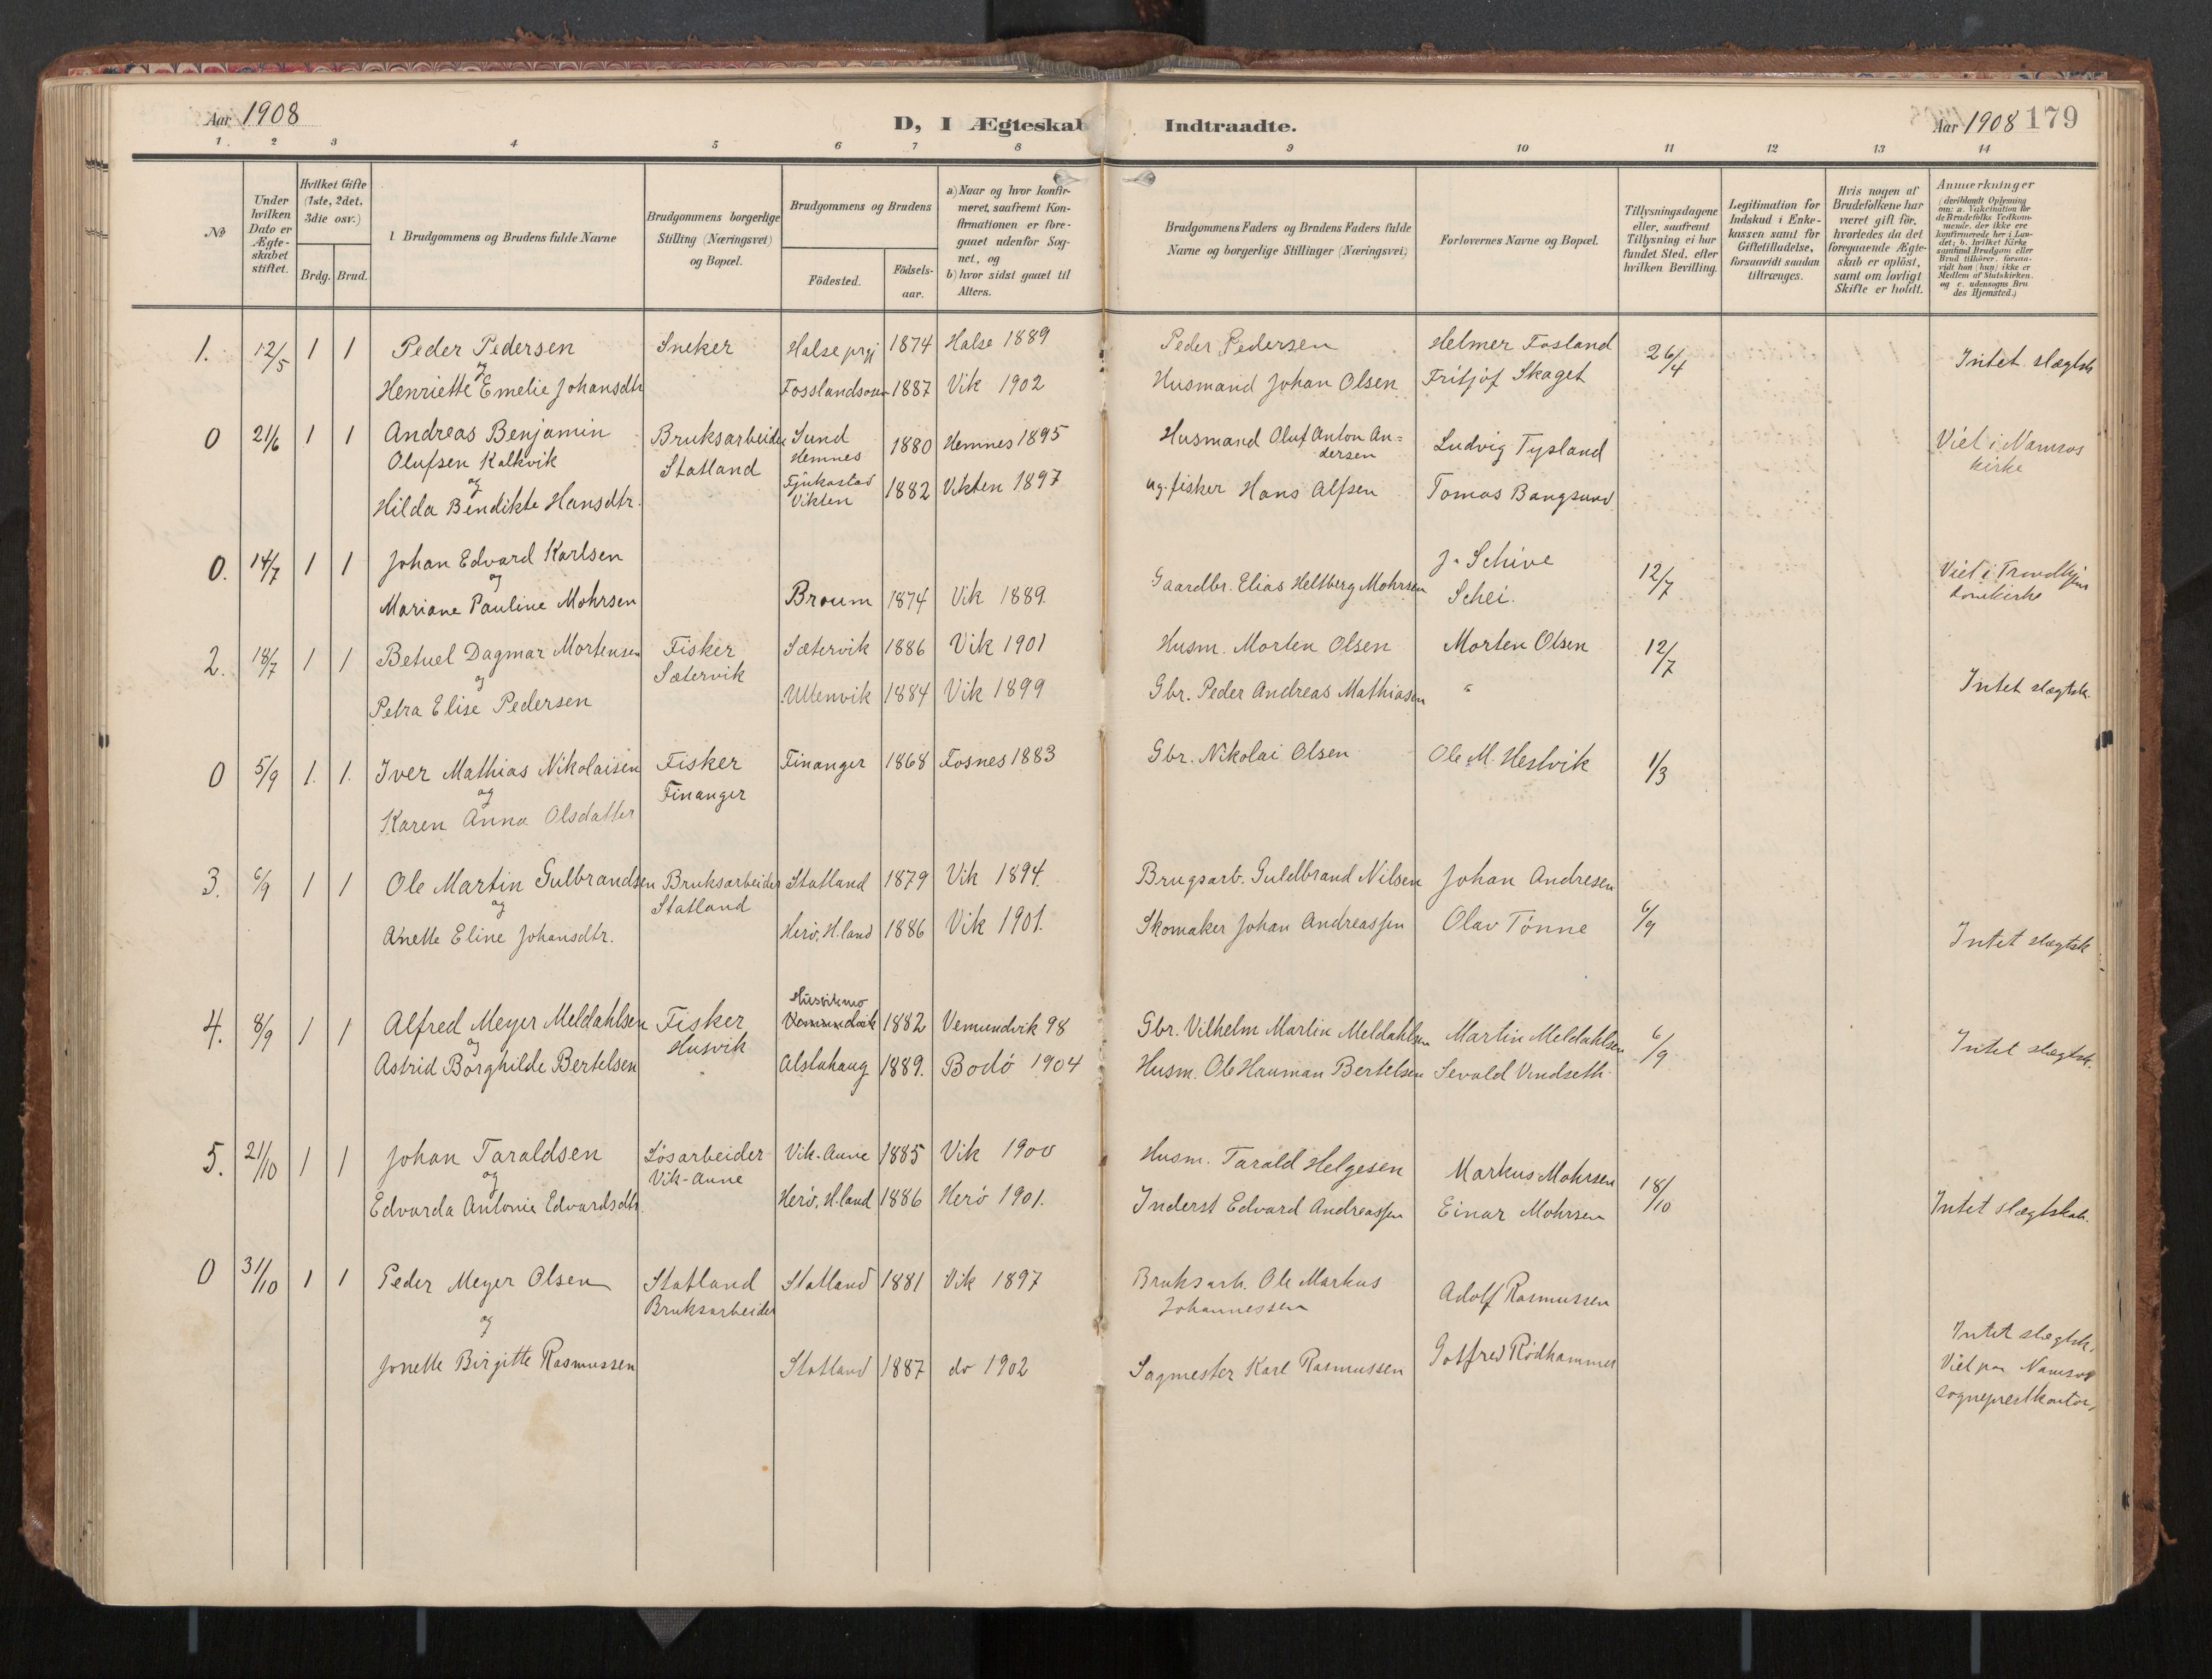 Aar 1908
D, I Ægteskab Indtraadte.
Aar 1908 179
1 2 3 4 5 6 7 8 9 10 11 12 13 14
No
Under hvilken Dato er Ægte-skabet stiftet.
Hvilket Gifte (1ste, 2det, 3die osv.)
Brdg. Brud.
Brudgommens og Brudens fulde Navne
Brudgommens borgerlige Stilling (Næringsvei) og Bopæl.
Brudgommens og Brudens
Födested.
Födsels-aar.
a) Naar og hvor konfir-meret, saafremt Kon-firmationen er fore-gaaet udenfor Sog-net, og
b) hvor sidst gaaet til Alters.
Brudgommens Faders og Brudens Faders fulde Navne og borgerlige Stillinger (Næringsvei)
Forlovernes Navne og Bopæl.
Tillysningsdagene eller, saafremt Tillysning ei har fundet Sted, efter hvilken Bevilling.
Legitimation for Indskud i Enke-kassen samt for Giftetilladelse, forsaavidt saadan tiltrænges.
Hvis nogen af Brudefolkene har været gift för, hvorledes da det foregaaende Ægte-skab er oplöst, samt om lovligt Skifte er holdt.
Anmærkninger (deriblandt Oplysning om: a. Vakcination for de Brudefolks Vedkom-mende, der ikke ere konfirmerede her i Lan-det; b. hvilket Kirke samfund Brudgom eller Brud tilhörer, forsaa-vidt han (hun) ikke er Medlem af Statskirken, og c. udensogns Bru des Hjemsted.)
1. 12/5 1 1 Peder Pedersen Sneker Halse prgj 1874 Halse 1889 Peder Pedersen Helmer Fosland 26/4 Intet slægtsk
og
Henriette Emelie Johansdtr Fosslandsosen 1887 Vik 1902 Husmand Johan Olsen Fritjof Skaget
0 21/6 1 1 Andreas Benjamin Bruksarbeider Sund 1880 Hemnes 1895 Husmand Oluf Anton An= Ludvig Tysland Viet i Namsos
Olufsen Kalkvik Statland Hemnes dersen kirke
og
Hilda Bendikte Hansdtr. Vikten 1882 Vikten 1897 ug. fisker Hans Alfsen Tomas Bangsund
0. 14/7 1 1 Johan Edvard Karlsen J. Schive 12/7 Viet i Trondhjem
og
Mariane Pauline Mohrsen Broum 1874 Vik 1889. Gaardbr. Elias Heltberg Mohrsen Schei. domkirke
2. 18/7 1 1 Betuel Dagmar Mortensen Fisker Sætervik 1886 Vik 1901 Husm. Morten Olsen Morten Olsen 12/7
og Sætervik
Petra Elise Pedersen Ullenvik 1884 Vik 1899 Gbr. Peder Andreas Mathiasen " Intet slægtsk.
0 5/9 1. 1. Iver Mathias Nikolaisen Fisker Finanger 1868 Fosnes 1883 Gbr. Nikolai Olsen Ole M. Hestvik 1/3
og Finanger
Karen Anna Olsdatter
3. 6/9 1 1 Ole Martin Gulbrandsen Bruksarbeider Statland 1879 Vik 1894. Brugsarb. Guldbrand Nilsen Johan Andresen
og Statland
Anette Eline Johansdtr. Herö, H.land 1886 Vik 1901. Skomaker Johan Andreassen Olav Tönne 6/9 Intet slægtsk
Husvikmo
4. 8/9 1 1 Alfred Meyer Meldahlsen Fisker Vemundvik 1882 Vemundvik 98 Gbr. Vilhelm Martin Meldahlsen Martin Meldahlsen 6/9 Intet slægtsk.
og Husvik
Astrid Borghilde Bertelsen Alstahaug 1889. Bodö 1904 Husm. Ole Hauman Bertelsen Sevald Vindseth
5. 21/10 1 1 Johan Taraldsen Lösarbeider Vik-Aune 1885 Vik 1900 Husm. Tarald Helgesen Markus Mohrsen 18/10
og Vik-Aune
Edvarda Antonie Edvardsdtr. Herö, H.land 1886 Herö 1901. Inderst Edvard Andreassen Einar Mohrsen Intet slægtskab.
0 31/10 1 1 Peder Meyer Olsen Statland Statland 1881 Vik 1897 Bruksarb. Ole Markus Adolf Rasmussen
Bruksarbeider Johannessen
og
Jonette Birgitte Rasmussen Statland 1887 do 1902 Sagmester Karl Rasmussen Gotfred Rödhammer Intet slægtsk.
Viet paa Namsos
sogneprestkontor,